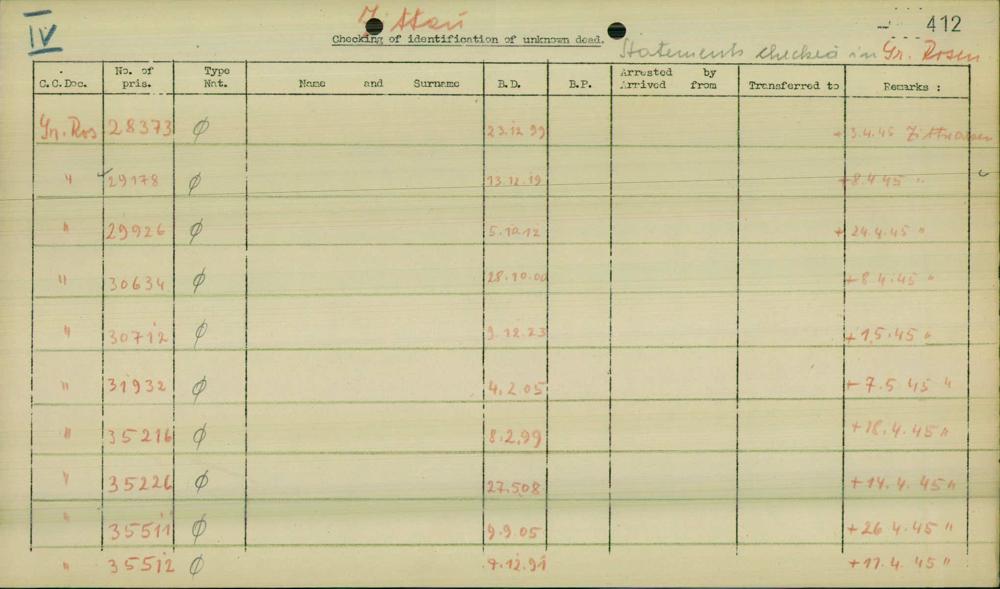 IV
Zittau
412
Checking of identification of unknown dead.
Statements checked in Gr. Rosen
C.C.Doc. No. of pris. Type Nat. Name and Surname B.D. B.P. Arrested by Arrived from Transferred to Remarks :
Gr. Ros 28373 ø 23.12 99 + 3.4.45
" 29178 ø 13.12.19 +8.4.45 "
" 29926 ø 5.10.12 + 24.4.45 "
" 30634 ø 28.10.00 +8.4.45 "
" 30712 ø 9.12.23 + 1.5.45 "
" 31932 ø 4.2.05 + 7.5 45 "
" 35216 ø 8.2.99 +18.4.45 "
" 35226 ø 27.5.08 + 14.4.45 "
" 35511 ø 9.9.05 +26 4.45 "
" 35512 ø .12.91 +17.4.45 "